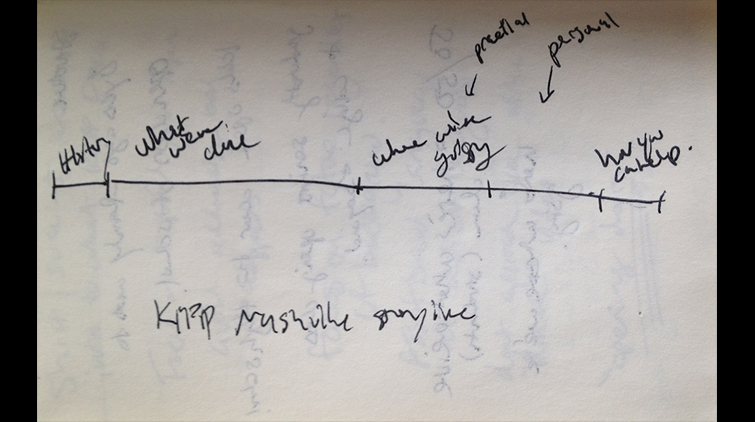 practical
personal
History
what
we've
done
where we're
going
how you
can help.
KIPP Nashville storyline